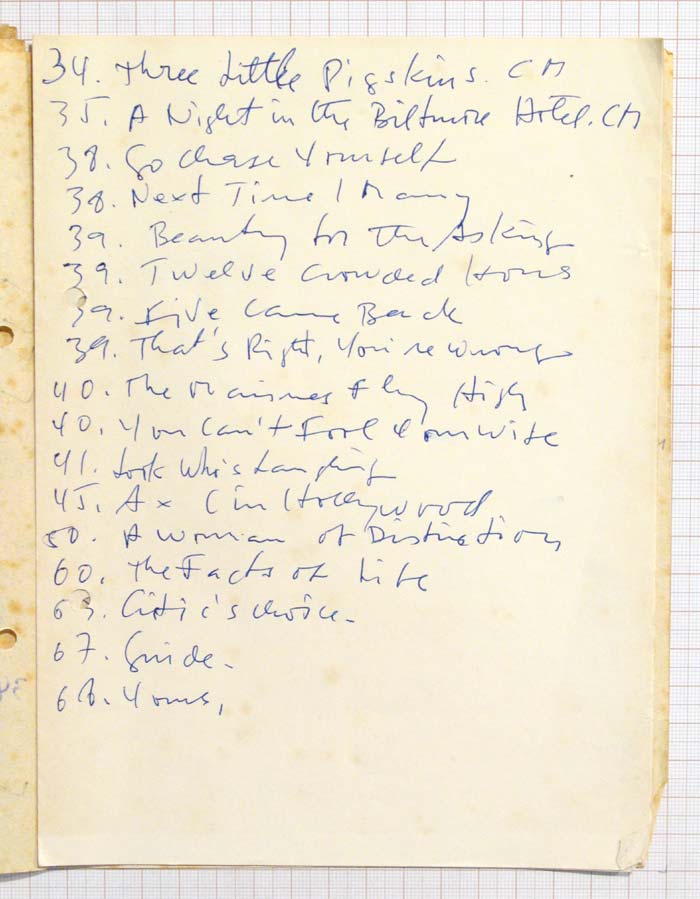 34. Three Little Pigskins. CM
35. A Night in the Biltmore Hotel. CM
38. Go Chase Yourself
38. Next Time I Marry
39. Beauty for the Asking
39. Twelve Crowded Hours
39. Five Came Back
39. That's Right, You're wrong
40. The Marines Fly High
40. You Can't Fool Your Wife
41. Look Who's Laughing
45. A & C in Hollywood
50. A Woman of Distinction
60. The Facts of Life
63. Critic's choice.
67. Guide.
68. Yours,